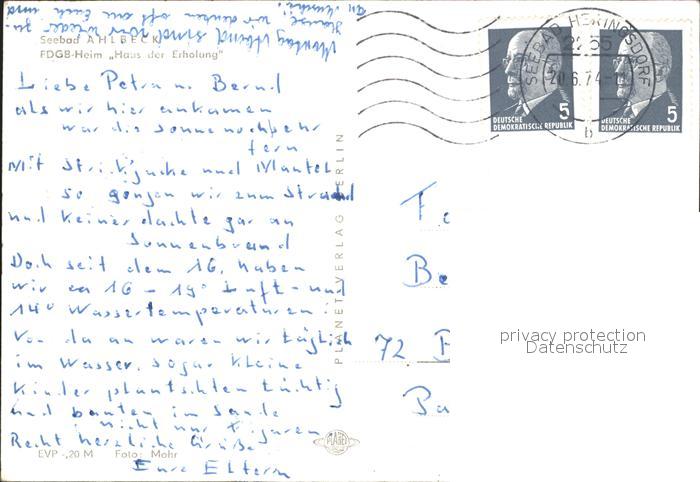 Montag Abend sind wir wieder zu-
Hause, wir denken oft an Euch und
Seebad AHLBECK
FDGB-Heim „Haus der Erholung"
Liebe Petra u. Bernd
als wir hier ankamen
war die Sonne noch sehr
fern
Mit Strickjacke und Mantel
so gingen wir zum Strand
und keiner dachte gar an
Sonnenbrand
Doch seit dem 16. haben
wir ca 16 - 19° Luft- und
14° Wassertemperaturen.
Von da an waren wir täglich
im Wasser, sogar kleine
Kinder plantschten tüchtig
und bauten im Sande
nicht nur Figuren
Recht herzliche Grüße
Eure Eltern
EVP -,20 M Foto: Mohr
PLANET-VERLAG BERLIN
PLANET
SEEBAD HERINGSDORF
2255
20.6.74
b
5
DEUTSCHE
DEMOKRATISCHE REPUBLIK
5
DEUTSCHE
DEMOKRATISCHE REPUBLIK
Be
72
Ba
privacy protection
Datenschutz